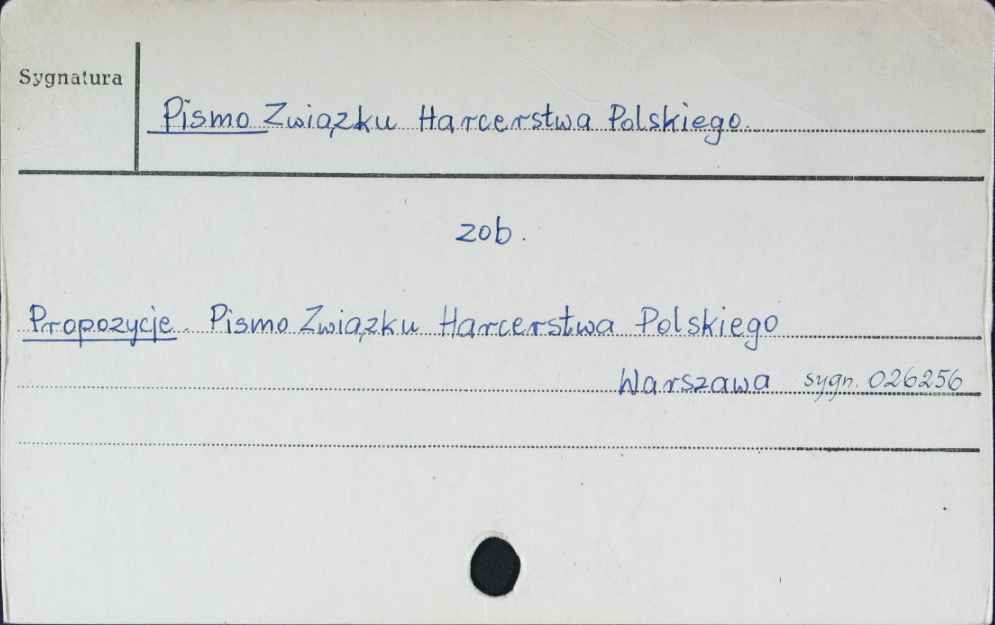 Sygnatura
Pismo Związku Harcerstwa Polskiego.
zob.
Propozycje. Pismo Związku Harcerstwa Polskiego
Warszawa sygn. 026256